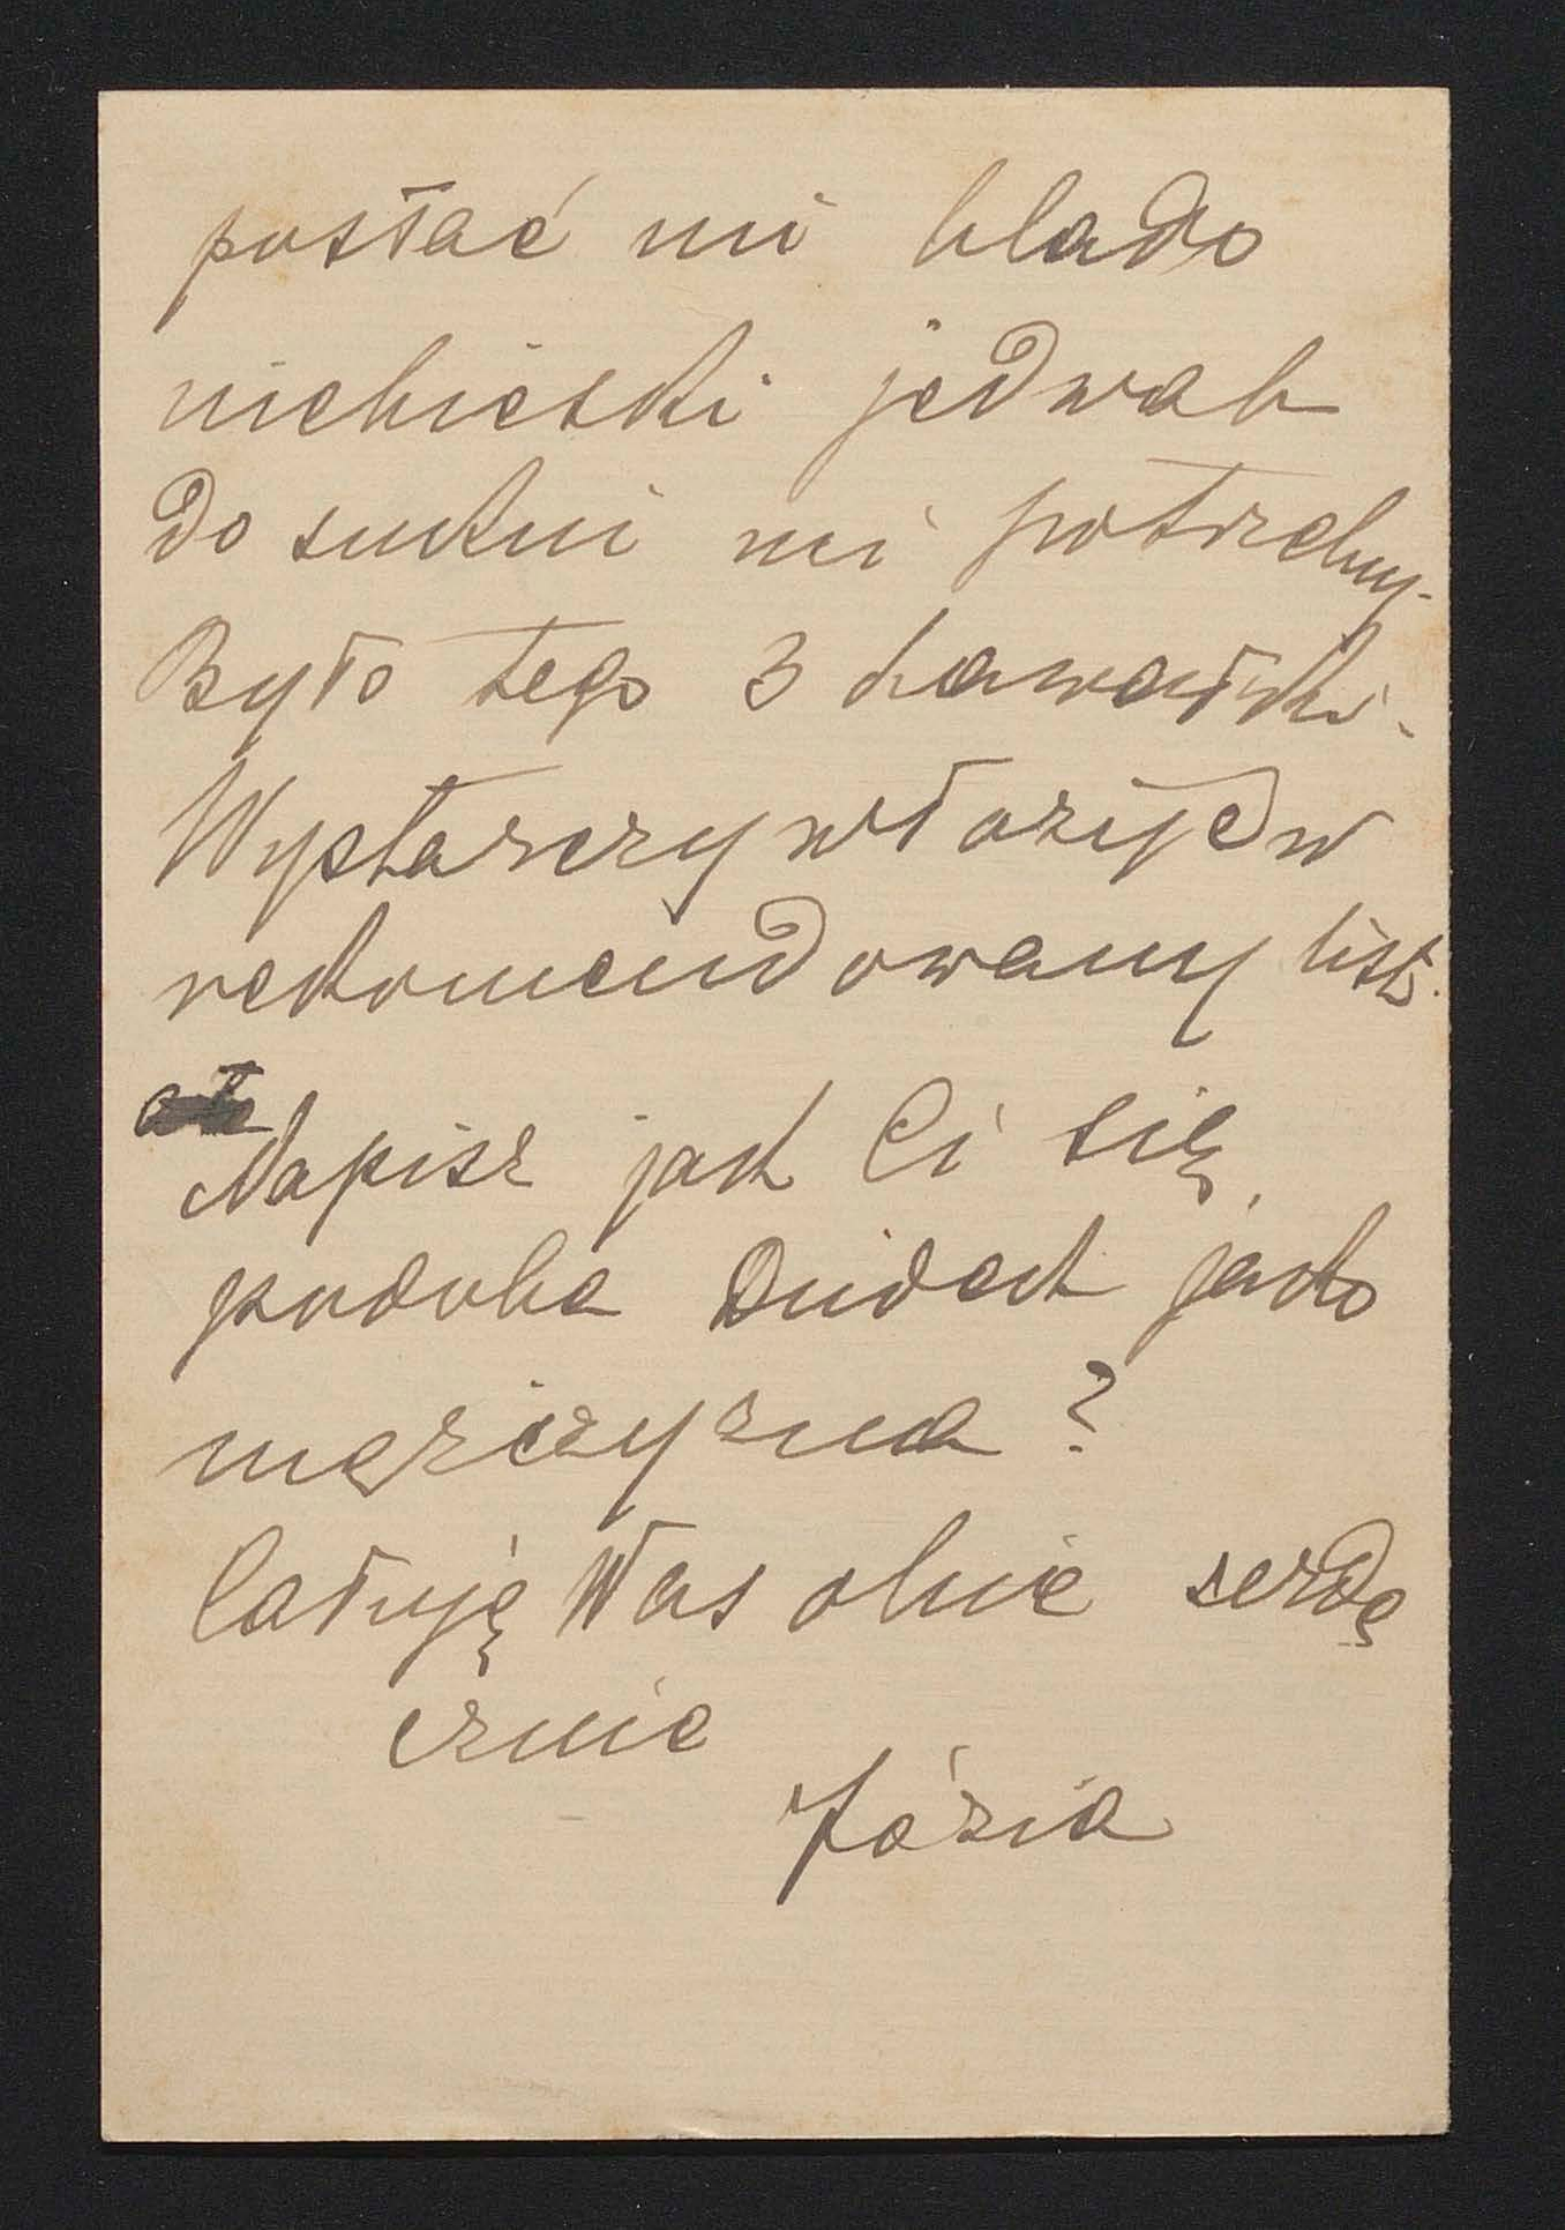 posłać mi blado
niebieski jedwab
do sukni mi potrzebny.
Było tego 3 kawałki.
Wystarczy włożyć w
rekomendowany list.
Napisz jak Ci się
podoba Dudek jako
mężczyzna?
Całuję Was obie serdę
cznie
Józia